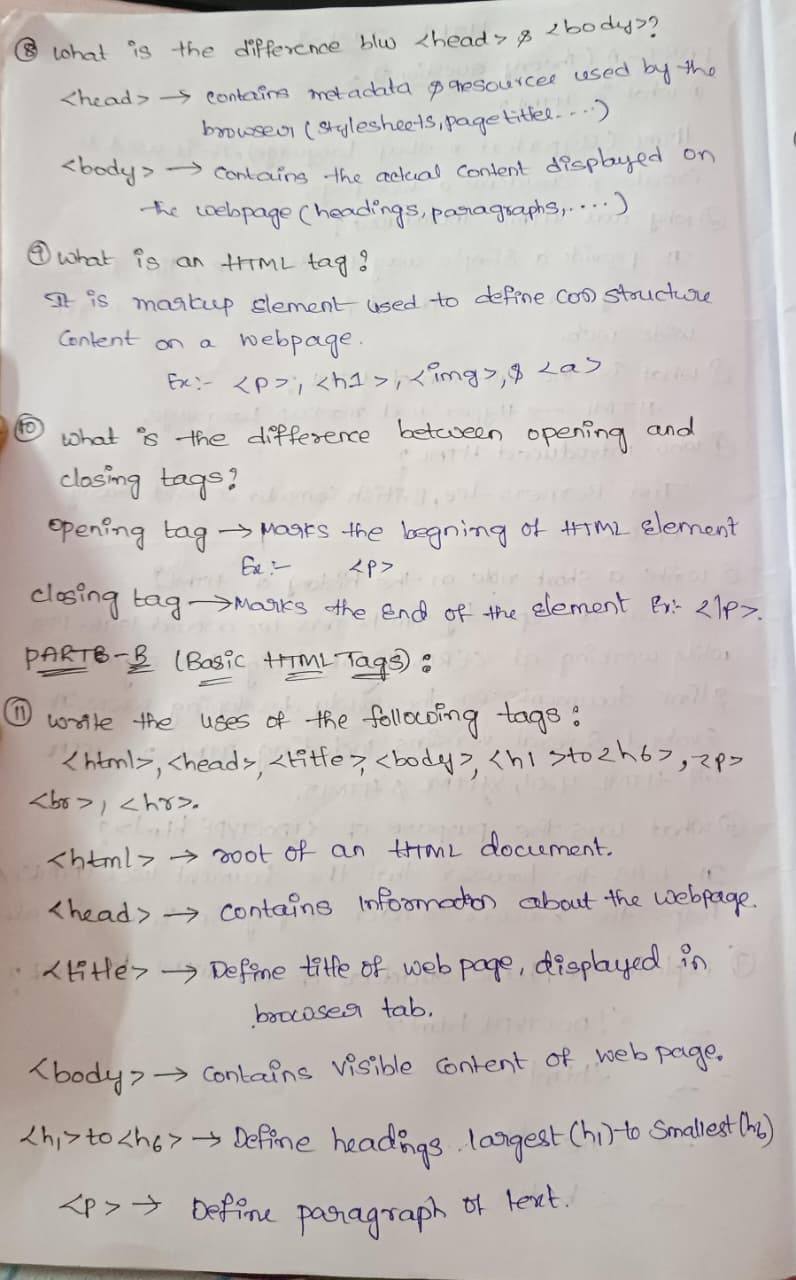 ⑧ what is the difference b/w <head> & <body>?
<head> → contains metadata & resources used by the
browser (stylesheets, page titlel....)
<body> → contains the actual content displayed on
the webpage (headings, paragraphs,....)
⑨ what is an HTML tag?
It is markup element used to define (or) structure
Content on a webpage.
Ex:- <p>, <h1>, <img>, & <a>
⑩ what is the difference between opening and
closing tags?
opening tag → Marks the begning of HTML element
Ex:- <p>
closing tag → Marks the End of the element Ex:- </p>.
PART-B (Basic HTML Tags):
⑪ write the uses of the following tags:
<html>, <head>, <title>, <body>, <h1> to <h6>, <p>
<br>, <hr>.
<html> → root of an HTML document.
<head> → contains Information about the webpage.
<title> → Define title of web page, displayed in
browser tab.
<body> → contains visible content of web page.
<h1> to <h6> → Define headings largest (h1)-to Smallest (h6)
<p> → Define paragraph of text.